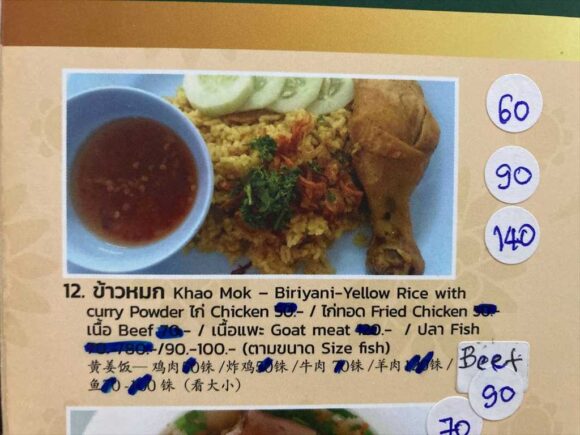 60
90
140
12. ข้าวหมก Khao Mok – Biriyani-Yellow Rice with
curry Powder ไก่ Chicken 50.- / ไก่ทอด Fried Chicken 50.-
เนื้อ Beef 70.- / เนื้อแพะ Goat meat .- / ปลา Fish
70.-/80.-/90.-100.- (ตามขนาด Size fish)
黄姜饭— 鸡肉 0铢 /炸鸡 0铢 /牛肉 70铢 /羊肉 铢 /
鱼 0 - 00 铢（看大小）
Beef
90
70